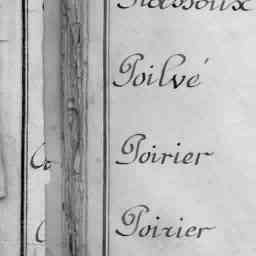 Poilvé
Poirier
Poirier